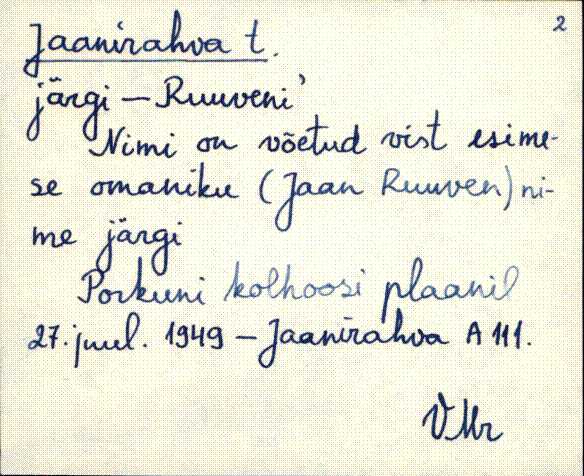 2
Jaanirahva t.
järgi – Ruuveni'
Nimi on võetud vist esime-
se omaniku (Jaan Ruuven) ni-
me järgi
Porkuni kolhoosi plaanil
27. juul. 1949 – Jaanirahva A 111.
VMr